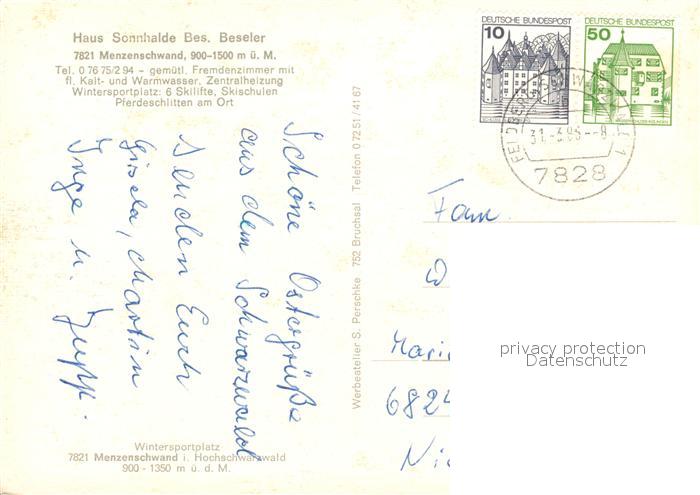 Haus Sonnhalde Bes. Beseler
7821 Menzenschwand, 900-1500 m ü. M.
Tel. 0 76 75/2 94 - gemütl. Fremdenzimmer mit
fl. Kalt- und Warmwasser, Zentralheizung
Wintersportplatz: 6 Skilifte, Skischulen
Pferdeschlitten am Ort
Schöne Ostergrüße
aus dem Schwarzwald
senden Euch
Gisela, Martin
Inge u. Jupp.
Wintersportplatz
7821 Menzenschwand i. Hochschwarzwald
900 - 1350 m ü. d. M.
Werbeatelier S. Perschke 752 Bruchsal Telefon 0 72 51 / 41 67
10 DEUTSCHE BUNDESPOST
DEUTSCHE BUNDESPOST
50
7828
Fam.
privacy protection
Datenschutz